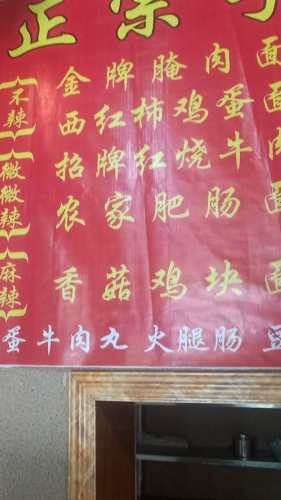 正宗
不辣
微微辣
麻辣
金牌腌肉面
西红柿鸡蛋面
招牌红烧牛肉
农家肥肠面
香菇鸡块面
蛋 牛肉丸 火腿肠 豆